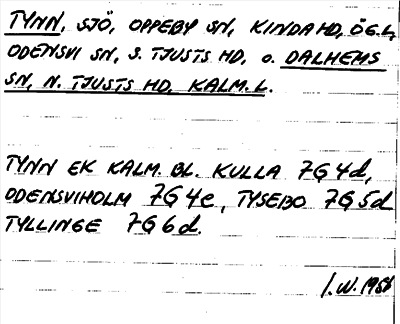 TYNN, SJÖ, OPPEBY SN, KINDA HD, ÖG.L,
ODENSVI SN, S. TJUSTS HD, o. DALHEMS
SN, N. TJUSTS HD, KALM. L.
TYNN EK KALM. BL. KULLA 7G4d,
ODENSVIHOLM 7G4e, TYSEBO 7G5d
TYLLINGE 7G6d.
I.W. 1968